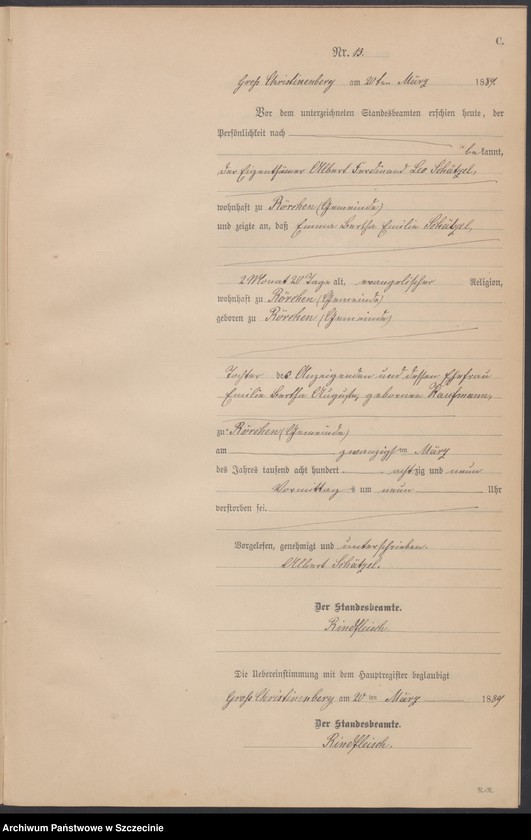 C.
Nr. 13.
Groß Christinenberg am 20ten März 1889.
Vor dem unterzeichneten Standesbeamten erschien heute, der
Persönlichkeit nach
bekannt,
der Eigenthümer Albert Ferdinand Leo Schätzel,
wohnhaft zu Rörchen (Gemeinde)
und zeigte an, daß Emma Bertha Emilie Schätzel,
2 Monat 20 Tage alt, evangelischer Religion,
wohnhaft zu Rörchen (Gemeinde)
geboren zu Rörchen (Gemeinde)
Tochter des Anzeigenden und dessen Ehefrau
Emilie Bertha Auguste, geborenen Kaufmann,
zu Rörchen (Gemeinde)
am zwanzigsten März
des Jahres tausend acht hundert achtzig und neun
Vormittags um neun Uhr
verstorben sei.
Vorgelesen, genehmigt und unterschrieben.
Albert Schätzel.
Der Standesbeamte.
Rindfleisch.
Die Uebereinstimmung mit dem Hauptregister beglaubigt
Groß Christinenberg am 20ten März 1889
Der Standesbeamte.
Rindfleisch.
Archiwum Państwowe w Szczecinie